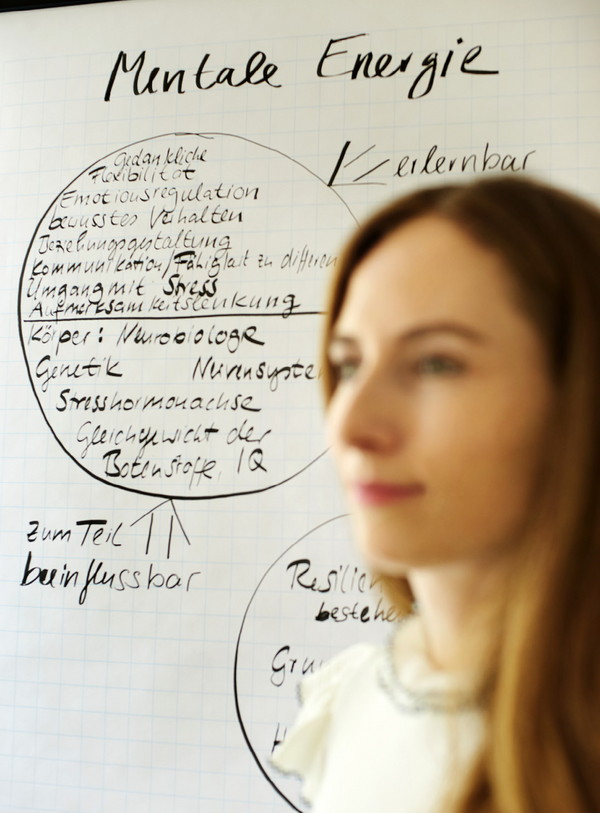 Mentale Energie
erlernbar
Gedankliche
Flexibilität
Emotionsregulation
bewusstes Verhalten
Beziehungsgestaltung
Kommunikation/Fähigkeit zu differen
Umgang mit Stress
Aufmerksamkeitslenkung
Körper: Neurobiologe
Genetik Nervensyste
Stresshormonachse
Gleichgewicht der
Botenstoffe, IQ
zum Teil
beeinflussbar
Resilien
bestehe
Gru
H